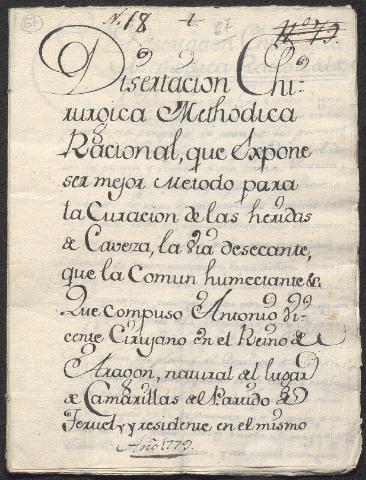 61
N. 18 -1- Nº 79.
Disertacion Chi-
rurgica Methodica
Racional, que Expone
ser mejor Metodo para
la Curacion de las heridas
de Caveza, la via desecante,
que la Comun humectante &c.
Que compuso Antonio Vi-
cente Cirujano en el Reino de
Aragon, natural del lugar
de Camarillas del Partido de
Teruel, y residente en el mismo
Año 1779.